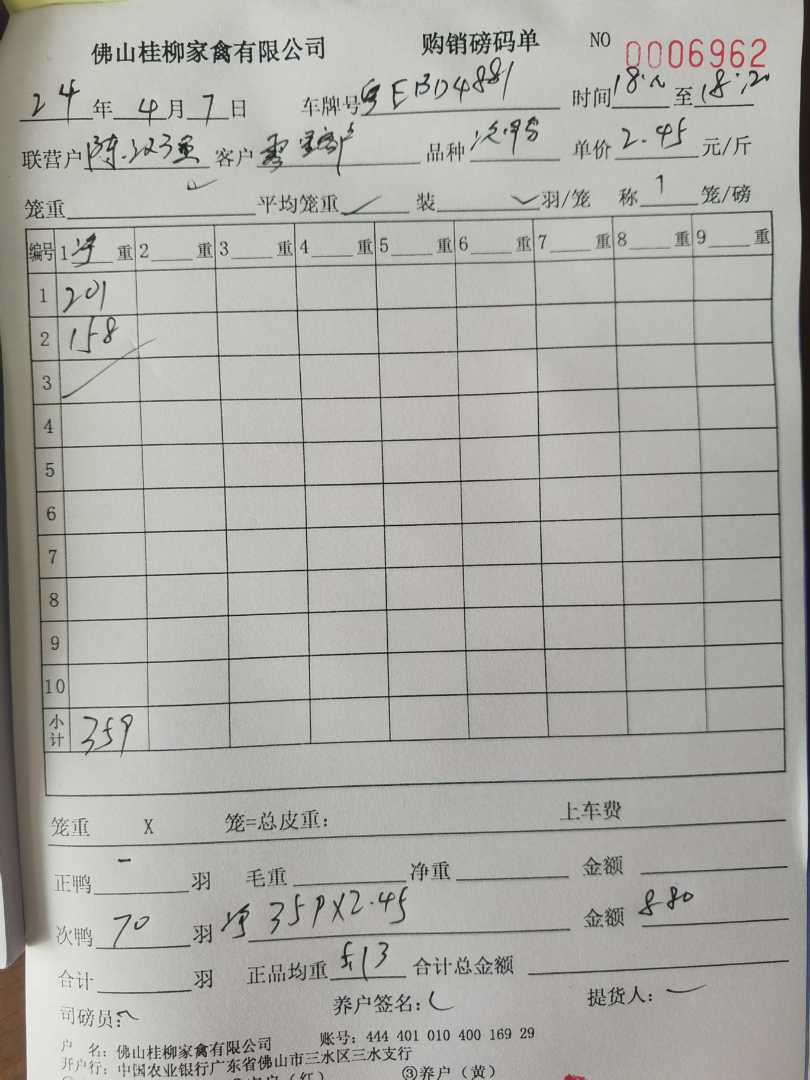 佛山桂柳家禽有限公司 购销磅码单 NO 0006962
24年4月7日 车牌号粤EBD4881 时间18:10至18:20
联营户 陈汉强 客户 品种 次鸭 单价 2.45 元/斤
笼重 平均笼重 装 羽/笼 称 1 笼/磅
编号 1 净 重 2 重 3 重 4 重 5 重 6 重 7 重 8 重 9 重
1 201
2 158
3
4
5
6
7
8
9
10
小计 359
笼重 X 笼=总皮重: 上车费
正鸭 - 羽 毛重 净重 金额
次鸭 70 羽 净 359X2.45 金额 880
合计 羽 正品均重 5.13 合计总金额
养户签名: 提货人:
司磅员:
户 名: 佛山桂柳家禽有限公司 账号: 444 401 010 400 169 29
开户行: 中国农业银行广东省佛山市三水区三水支行
③养户（黄）